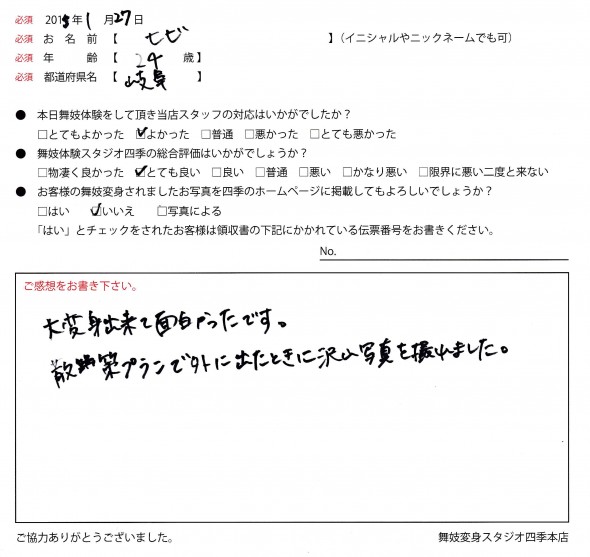 必須 2015年1月27日
必須 お名前【 ヒビ 】(イニシャルやニックネームでも可)
必須 年齢【 24 歳】
必須 都道府県名【 岐阜 】
● 本日舞妓体験をして頂き当店スタッフの対応はいかがでしたか?
□とてもよかった ☑よかった □普通 □悪かった □とても悪かった
● 舞妓体験スタジオ四季の総合評価はいかがでしょうか?
□物凄く良かった ☑とても良い □良い □普通 □悪い □かなり悪い □限界に悪い二度と来ない
● お客様の舞妓変身されましたお写真を四季のホームページに掲載してもよろしいでしょうか?
□はい ☑いいえ □写真による
「はい」とチェックをされたお客様は領収書の下記にかかれている伝票番号をお書きください。
No.
ご感想をお書き下さい。
大変身出来て面白かったです。
散策プランで外に出たときに沢山写真を撮れました。
ご協力ありがとうございました。 舞妓変身スタジオ四季本店